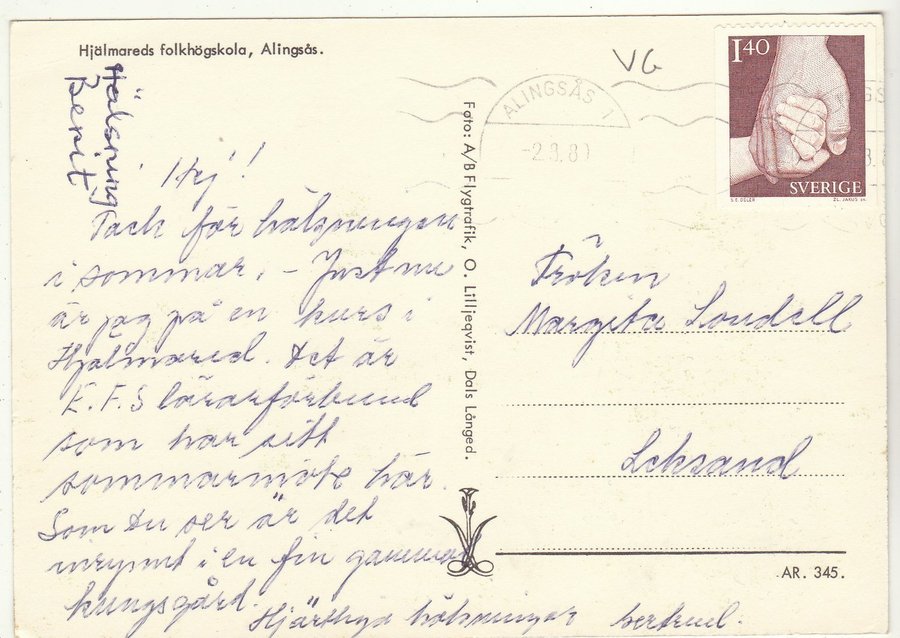 Hjälmareds folkhögskola, Alingsås.
Hälsning
Berit
Hej!
Tack för hälsningen
i sommar. – Just nu
är jag på en kurs i
Hjälmared. Det är
E.F.S lärarförbund
som har sitt
sommarmöte här.
Som Du ser är det
inrymt i en fin gammal
kungsgård.
Hjärtliga hälsningar
Foto: A/B Flygtrafik, O. Lilljeqvist, Dals Långed.
VG
ALINGSÅS 1
1 40
SVERIGE
Fröken
Margita
Leksand
AR. 345.